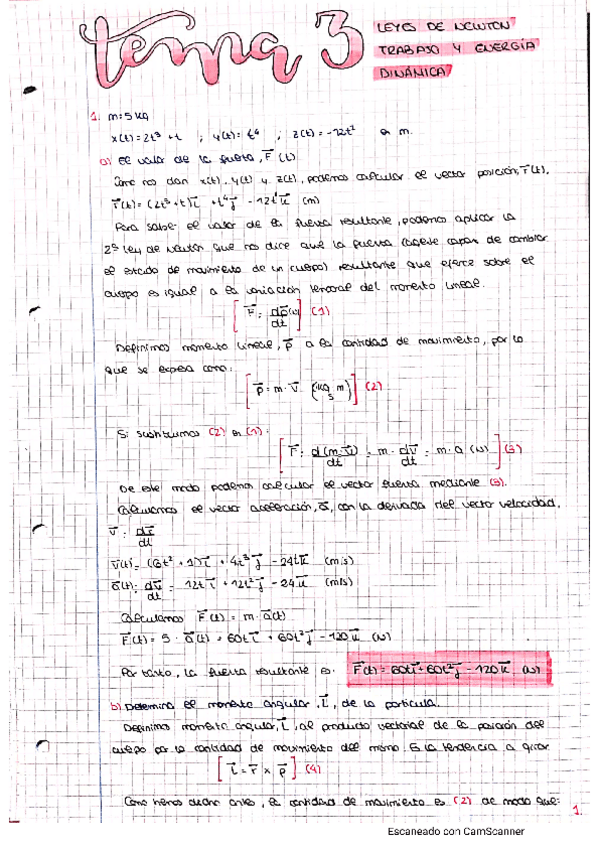 tema 3
LEYES DE NEWTON
TRABAJO Y ENERGÍA
DINÁMICA
1. m=5kg
x(t)=2t³+t ; y(t)=t⁴ ; z(t)=-12t² en m.
a) El valor de la fuerza, F⃗(t)
Como nos dan x(t), y(t) y z(t), podemos calcular el vector posición, r⃗(t).
r⃗(t)=(2t³+t)i⃗ + t⁴j⃗ - 12t²k⃗ (m)
Para saber el valor de la fuerza resultante, podemos aplicar la
2ª ley de Newton que nos dice que la fuerza (agente capaz de cambiar
el estado de movimiento de un cuerpo) resultante que ejerce sobre el
cuerpo es igual a la variación temporal del momento lineal.
[F⃗ = dp⃗/dt (N)] (1)
Definimos momento lineal, p⃗ a la cantidad de movimiento, por lo
que se expresa como:
[p⃗ = m · v⃗ (kg m/s)] (2)
Si sustituimos (2) en (1):
[F⃗ = d(m·v⃗)/dt = m · dv⃗/dt = m · a (N)] (3)
De este modo podemos calcular el vector fuerza mediante (3).
Calculamos el vector aceleración, a⃗, con la derivada del vector velocidad.
v⃗ = dr⃗/dt
v⃗(t) = (6t² + 1)i⃗ + 4t³j⃗ - 24tk⃗ (m/s)
a⃗(t) = dv⃗/dt = 12ti⃗ + 12t²j⃗ - 24k⃗ (m/s)
Calculamos F⃗(t) = m · a⃗(t)
F⃗(t) = 5 · a⃗(t) = 60ti⃗ + 60t²j⃗ - 120k⃗ (N)
Por tanto, la fuerza resultante es: F⃗(t) = 60ti⃗ + 60t²j⃗ - 120k⃗ (N)
b) Determina el momento angular, L⃗, de la partícula.
Definimos momento angular, L⃗, al producto vectorial de la posición del
cuerpo por la cantidad de movimiento del mismo. Es la tendencia a girar
[L⃗ = r⃗ × p⃗] (4)
Como hemos dicho antes, la cantidad de movimiento es (2) de modo que:
1.
Escaneado con CamScanner